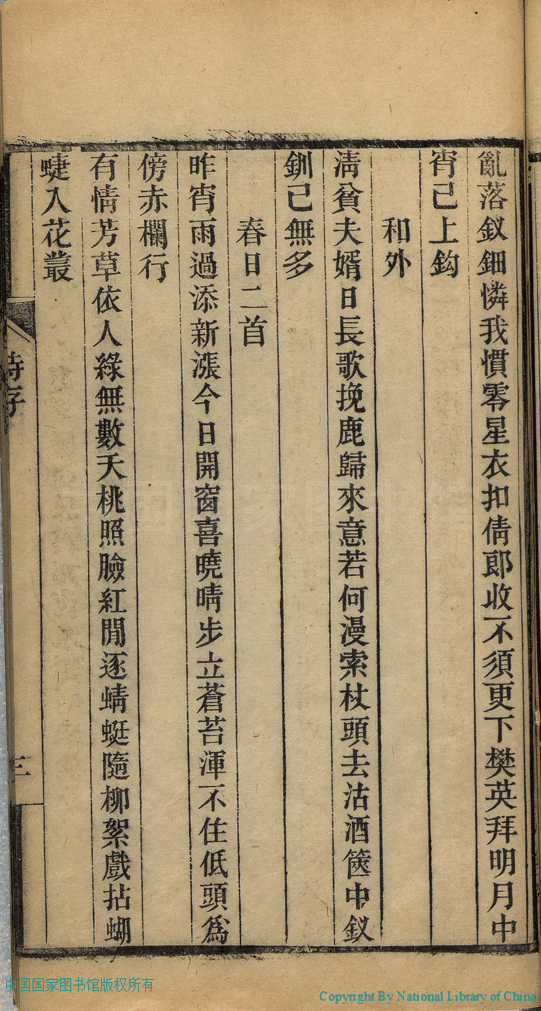 亂落釵鈿憐我慣零星衣扣倩郎收不須更下樊英拜明月中
宵已上鈎
和外
清貧夫婿日長歌挽鹿歸來意若何漫索杖頭去沽酒篋中釵
釧已無多
春日二首
昨宵雨過添新漲今日開窗喜曉晴步立蒼苔渾不住低頭爲
傍赤欄行
有情芳草依人綠無數夭桃照臉紅閒逐蜻蜓隨柳絮戲拈蝴
蜨入花叢
詩存
三
中国国家图书馆版权所有
Copyright By National Library of China